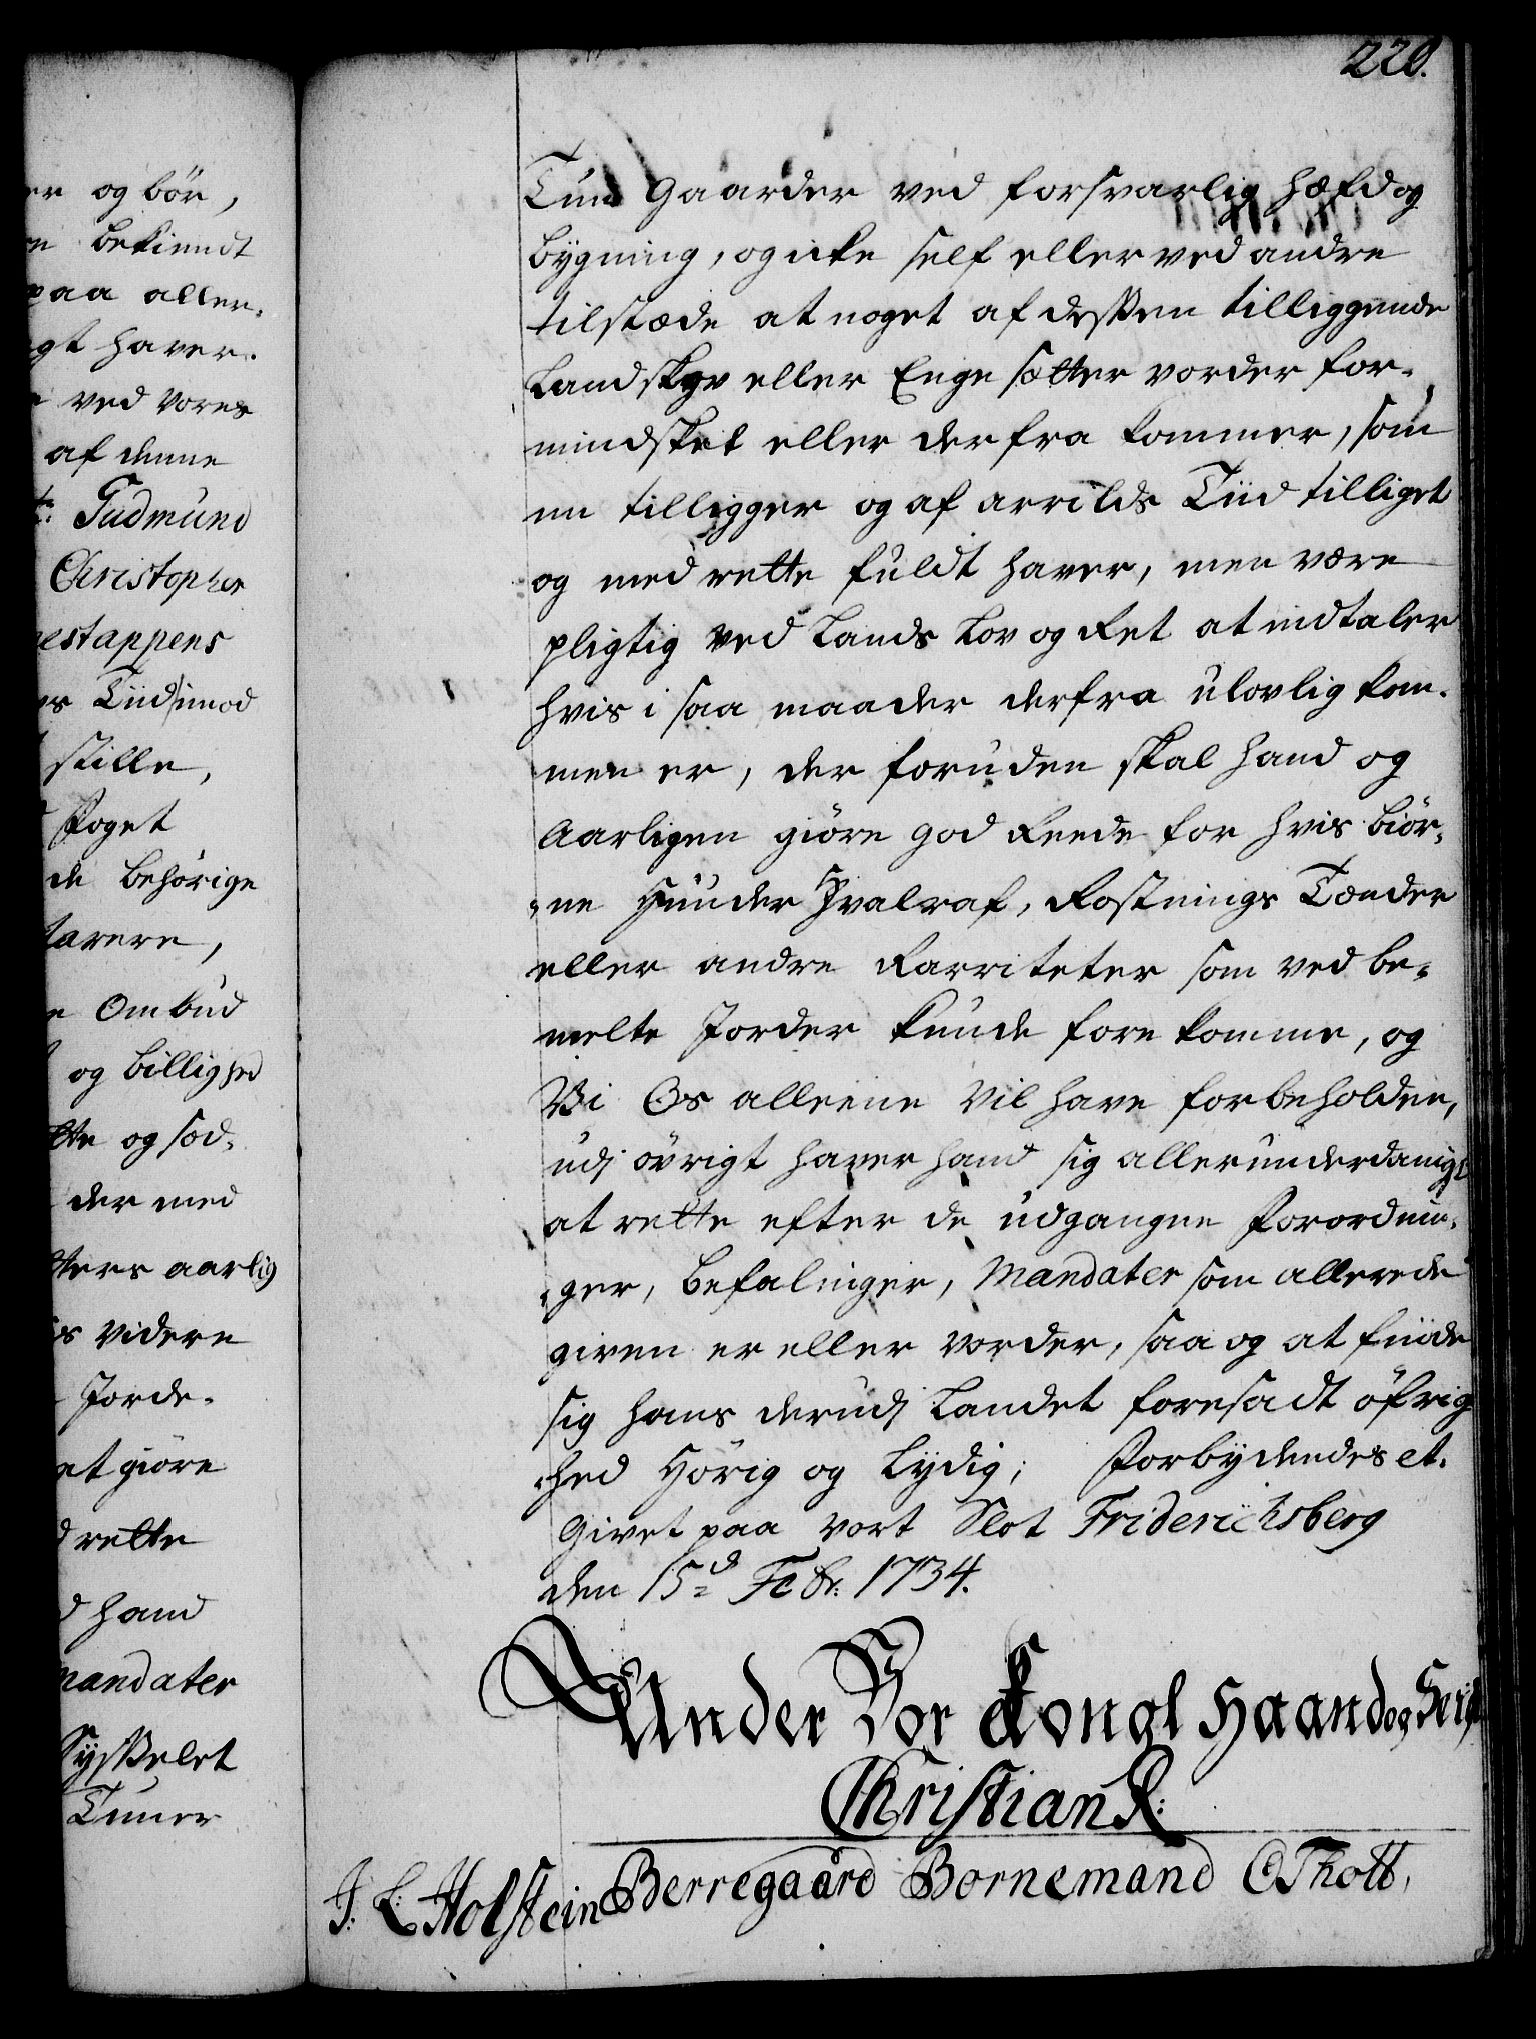 220.
er og bör,
n bekiendt
paa aller-
gt haver.
ved vores
af denne
Gudmund
Christopher
estappens
s Tiid imod
stille,
Foget
de behörige
tarere,
e Ombud
og billighed
tte og sad-
der med
tters aarlig
s videre
Jorde-
et giöre
d rette
d hand
Mandater
Sysselet
Tuner
Tune Gaarder ved forsvarlig hæfd og
bÿgning, og icke self eller ved andre
tilstæde at noget af dessen tilliggende
Landskyv eller Enge sætter vorder for-
mindsket eller derfra kommer, som
nu tilligger og af arrilds Tiid tilliget
og med rette fuldt haver, men være
pligtig ved Lands Lov og Ret at indtaler
hvis i saa maader derfra ulovlig kom-
men er, der foruden skal hand og
Aarligen giöre god Reede for hvis biör-
ne Huuder Hvalraf, Rostnings Tænder
eller andre Rarriteter som ved be-
melte Jorder kunde fore komme, og
Vi Os alleene vil have forbeholden,
udi övrigt haver hand sig allerunderdanigst
at rette efter de udgangne Forordnin-
ger, befalinger, Mandater som allerede
given er eller vorder, saa og at finde
sig hans derudi Landet foresadt öfrig
hed Hörig og Lÿdig; Forbydendes et.
Givet paa vort Slot Friderichsberg
den 15d Febr: 1734.
Under Vor Kongl Haand og Seigl
Christian R:
J: L: Holstein Berregaard Bornemand O Thott,